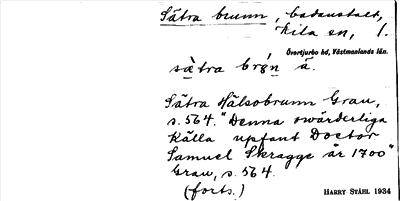 Sätra brunn, badanstalt,
Kila sn, 1.
Övertjurbo hd, Västmanlands län.
sä̀tra brǿn ä.
Sätra Hälsobrunn Grau,
s. 564. "Denna owärderliga
Källa upfant Doctor
Samuel Skragge år 1700"
Grau, s. 564.
(forts.)
HARRY STÅHL 1934